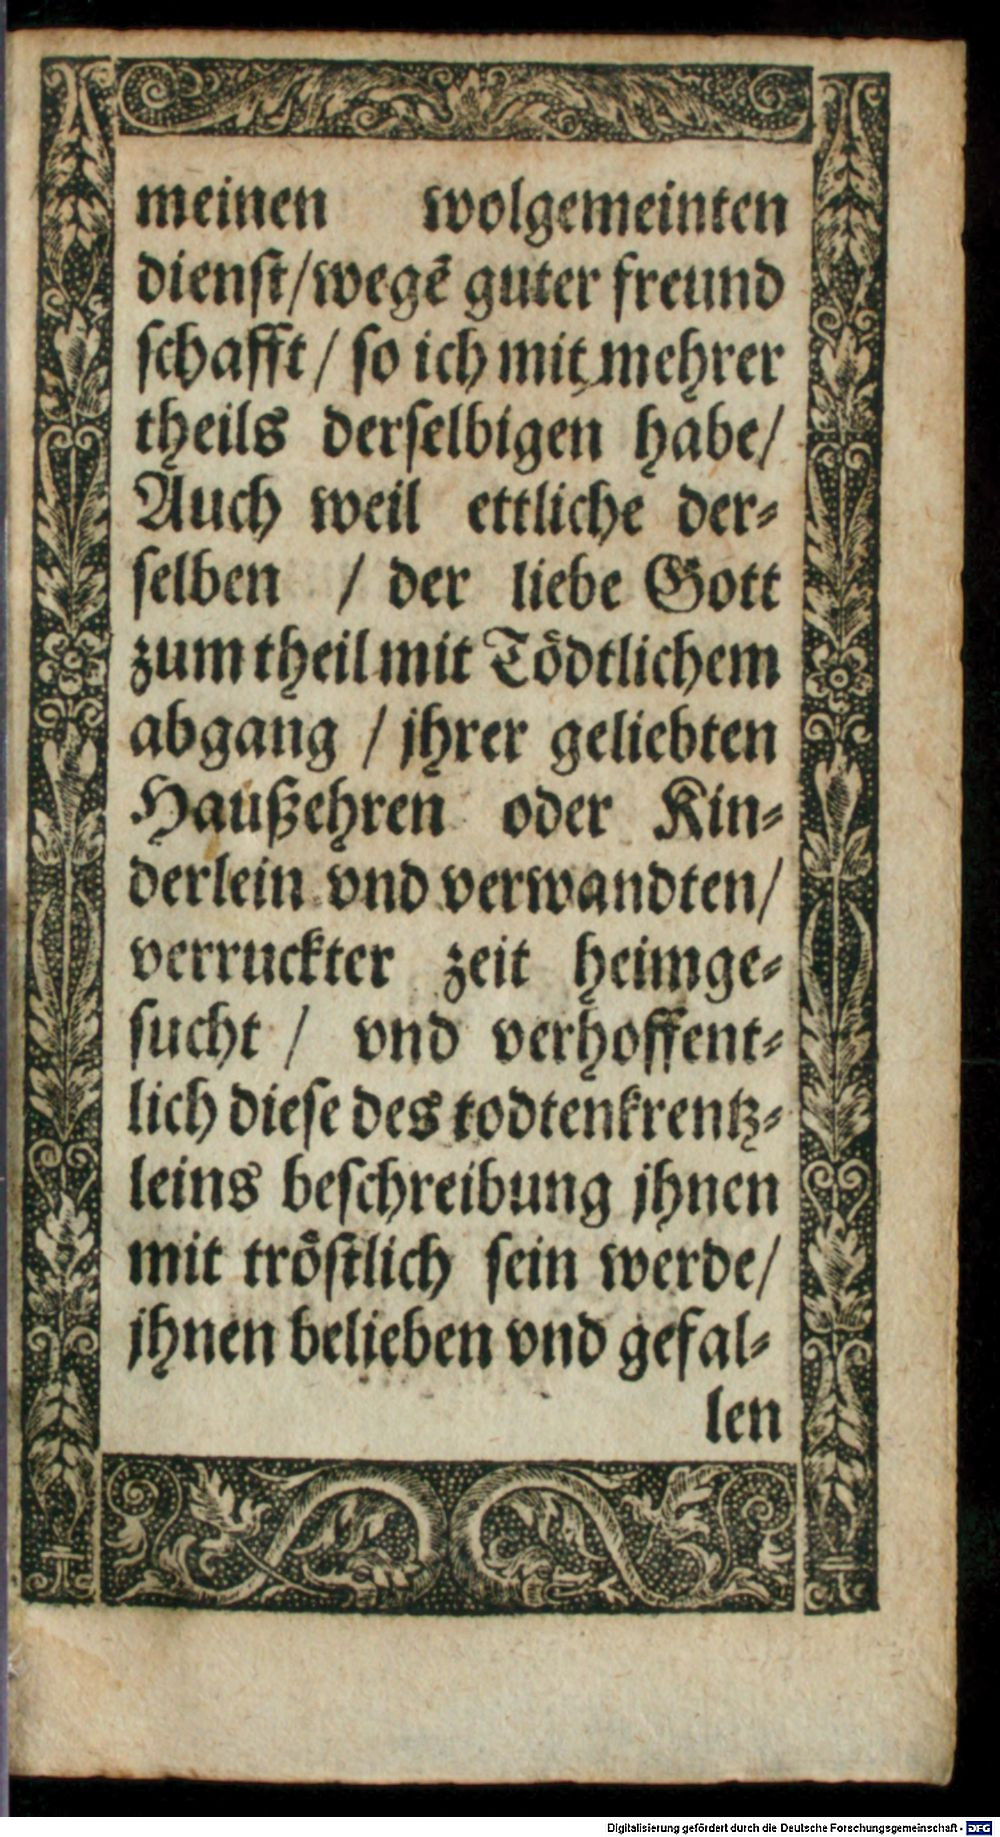 meinen wolgemeinten
dienst/wegẽ guter freund
schafft / so ich mit mehrer
theils derselbigen habe/
Auch weil ettliche der-
selben / der liebe Gott
zum theil mit Tödtlichem
abgang / jhrer geliebten
Haußehren oder Kin-
derlein vnd verwandten/
verruckter zeit heimge-
sucht / vnd verhoffent-
lich diese des todtenkrentz-
leins beschreibung jhnen
mit tröstlich sein werde/
jhnen belieben vnd gefal-
len
Digitalisierung gefördert durch die Deutsche Forschungsgemeinschaft - DFG